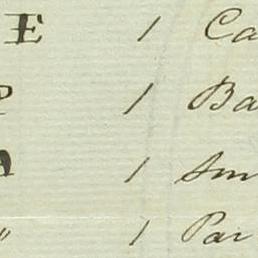 E 1 Ca
P 1 Ba
1 Sm
" 1 Par